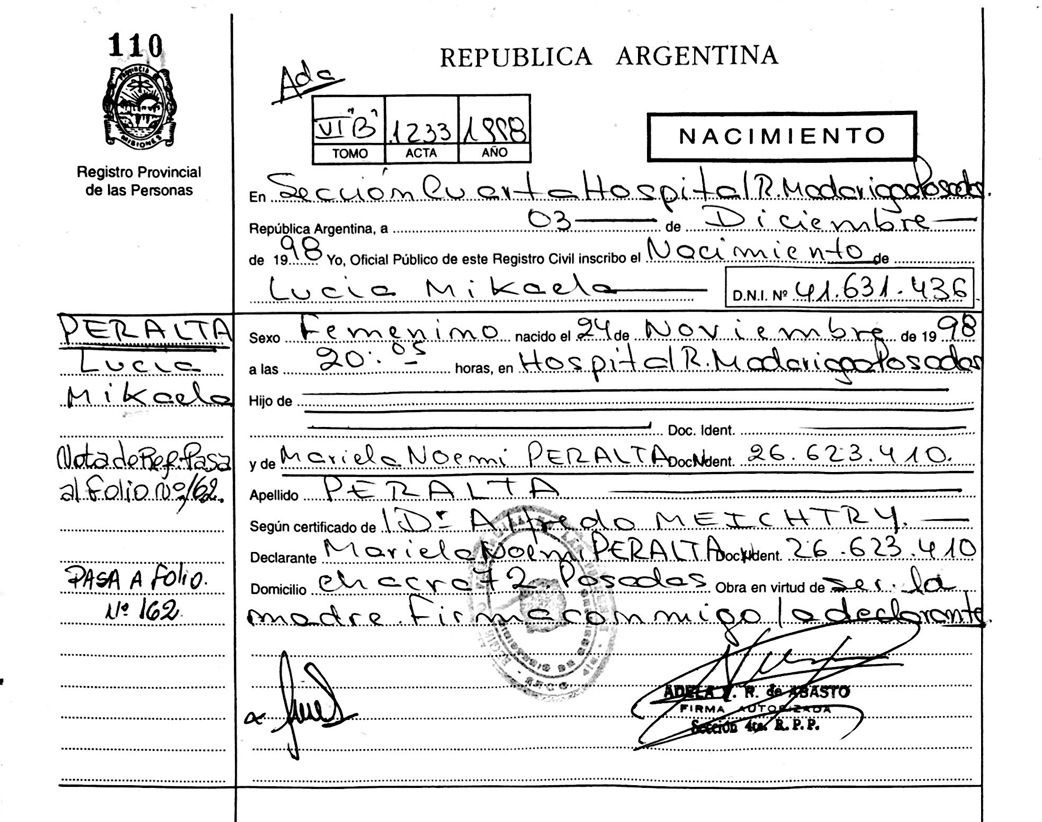 110
PROVINCIA DE MISIONES
Registro Provincial
de las Personas
REPUBLICA ARGENTINA
Ada
VI "B" 1233 1998
TOMO ACTA AÑO
NACIMIENTO
En Sección Cuarta Hospital R. Madariaga Posadas.
República Argentina, a 03 de Diciembre
de 1998 Yo, Oficial Público de este Registro Civil inscribo el Nacimiento de
Lucia Mikaela D.N.I. Nº 41.631.436
PERALTA
Lucia
Mikaela
Sexo Femenimo nacido el 24 de Noviembre de 1998
a las 20:05 horas, en Hospital R. Madariaga Posadas
Hijo de
Doc. Ident.
Nota de Ref. Pasa
al Folio Nº/62.
y de Mariela Noemi PERALTA Doc. Ident. 26.623.410.
Apellido PERALTA
Según certificado de Dr Alfredo MEICHTRY.
Declarante Mariela Noemi PERALTA Doc. Ident. 26.623.410
PASA A Folio.
Nº 162.
Domicilio chacra 72 Posadas Obra en virtud de ser la
madre. Firma conmigo la declarante.
ADELA R. de ABASTO
FIRMA AUTORIZADA
Sección 4ta. R.P.P.